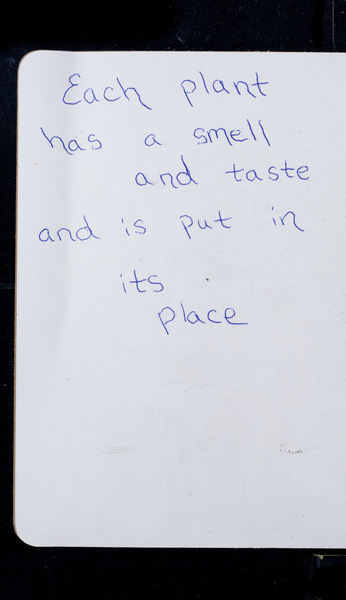 Each plant
has a smell
and taste
and is put in
its
place